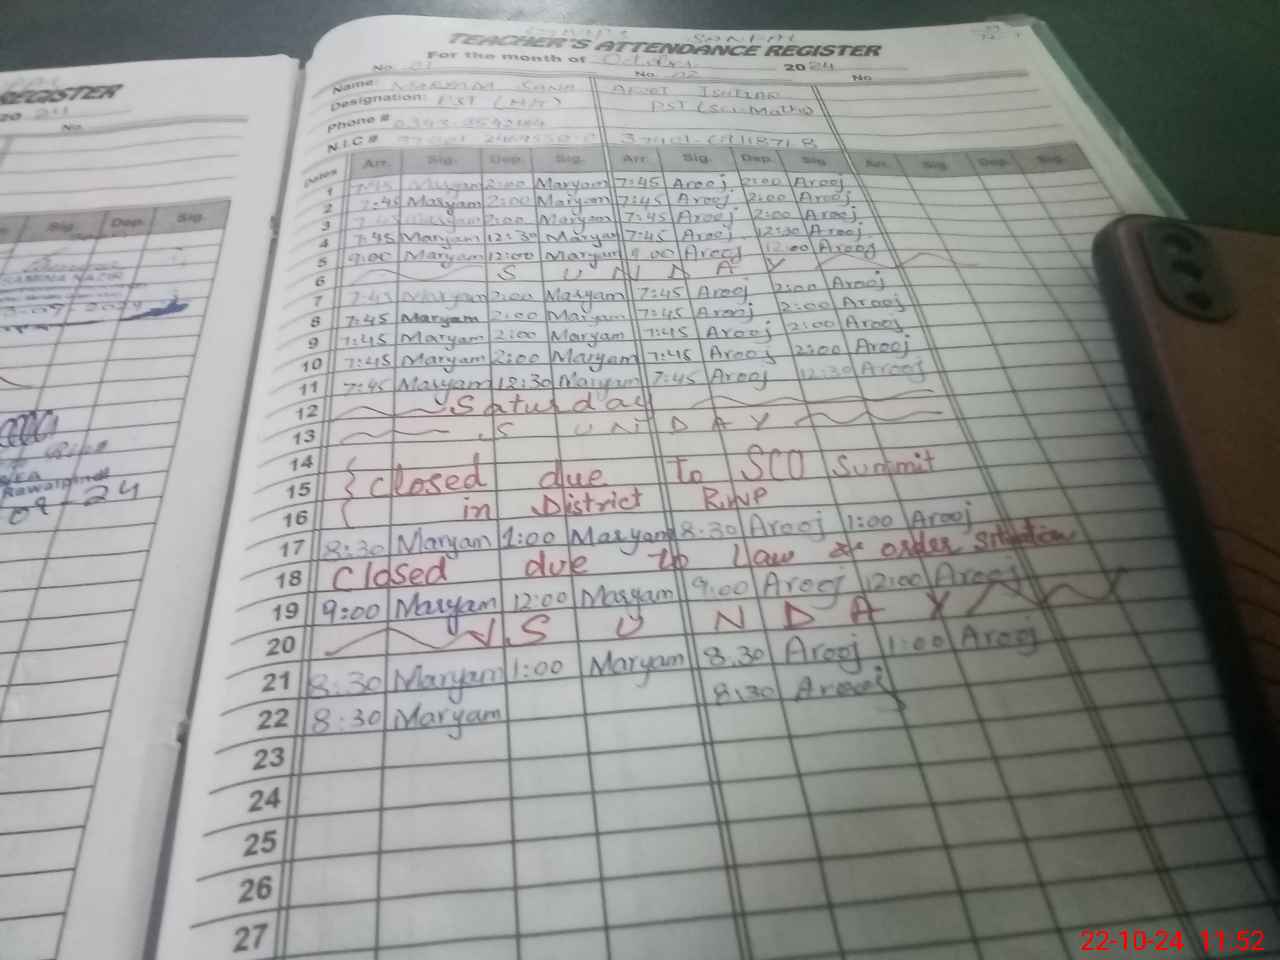 REGISTER
20 24
No.
Sig. Dep. Sig.
SAMINA NAZIR
Rawalpindi
09 24
TEACHER'S ATTENDANCE REGISTER
For the month of October 2024
No. 01 No. 02 No.
Name: MARYAM SANA AROOJ
Designation: PST (M/T) PST (Sci-Maths)
Phone #
N.I.C #
Dates Arr. Sig. Dep. Sig. Arr. Sig. Dep. Sig. Arr. Sig. Dep. Sig.
1 7:45 Maryam 2:00 Maryam 7:45 Arooj 2:00 Arooj
2 7:45 Maryam 2:00 Maryam 7:45 Arooj 2:00 Arooj
3 7:45 Maryam 2:00 Maryam 7:45 Arooj 2:00 Arooj
4 7:45 Maryam 12:30 Maryam 7:45 Arooj 12:30 Arooj
5 9:00 Maryam 12:00 Maryam 9:00 Arooj 12:00 Arooj
6 S U N D A Y
7 7:45 Maryam 2:00 Maryam 7:45 Arooj 2:00 Arooj
8 7:45 Maryam 2:00 Maryam 7:45 Arooj 2:00 Arooj
9 7:45 Maryam 2:00 Maryam 7:45 Arooj 2:00 Arooj
10 7:45 Maryam 2:00 Maryam 7:45 Arooj 2:00 Arooj
11 7:45 Maryam 12:30 Maryam 7:45 Arooj 12:30 Arooj
12 Saturday
13 S U N D A Y
14
15 closed due to SCO Summit
16 in District RWP
17 8:30 Maryam 1:00 Maryam 8:30 Arooj 1:00 Arooj
18 closed due to Law & order situation
19 9:00 Maryam 12:00 Maryam 9:00 Arooj 12:00 Arooj
20 S U N D A Y
21 8:30 Maryam 1:00 Maryam 8:30 Arooj 1:00 Arooj
22 8:30 Maryam 8:30 Arooj
23
24
25
26
27
22-10-24 11:52